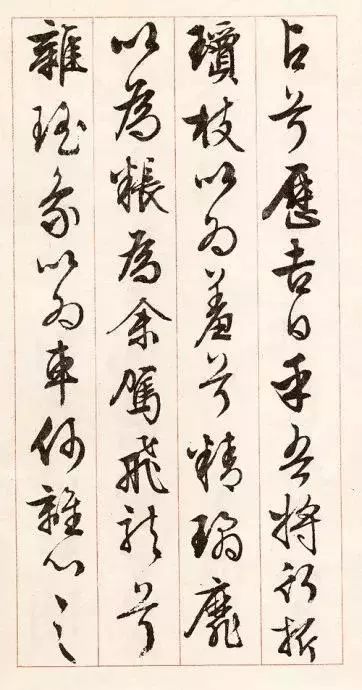 占兮歷吉日乎吾將行折
瓊枝以為羞兮精瓊靡
以為粻為余駕飛龍兮
雜瑤象以為車何離心之